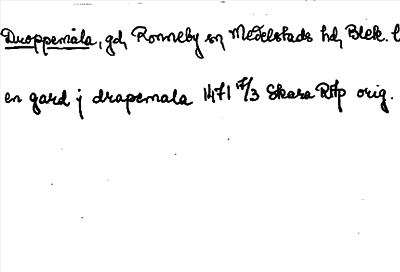 Droppemåla, gd, Ronneby sn, Medelstads hd, Blek. l
en gard j drapemala 1471 7/3 Skara RAp orig.